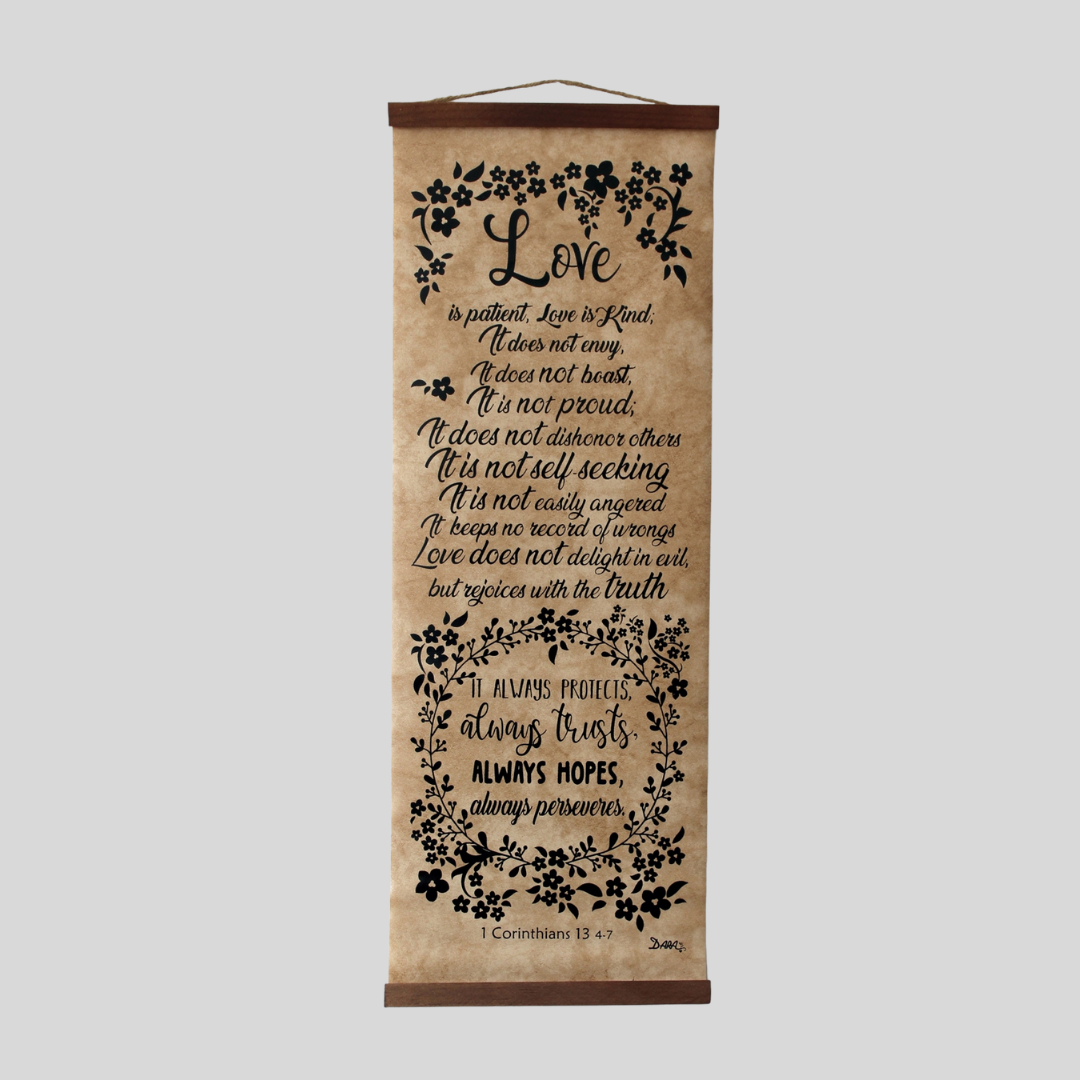 Love
is patient, Love is Kind;
It does not envy,
It does not boast,
It is not proud;
It does not dishonor others
It is not self-seeking
It is not easily angered
It keeps no record of wrongs
Love does not delight in evil,
but rejoices with the truth
IT ALWAYS PROTECTS,
always trusts,
ALWAYS HOPES,
always perseveres.
1 Corinthians 13 4-7